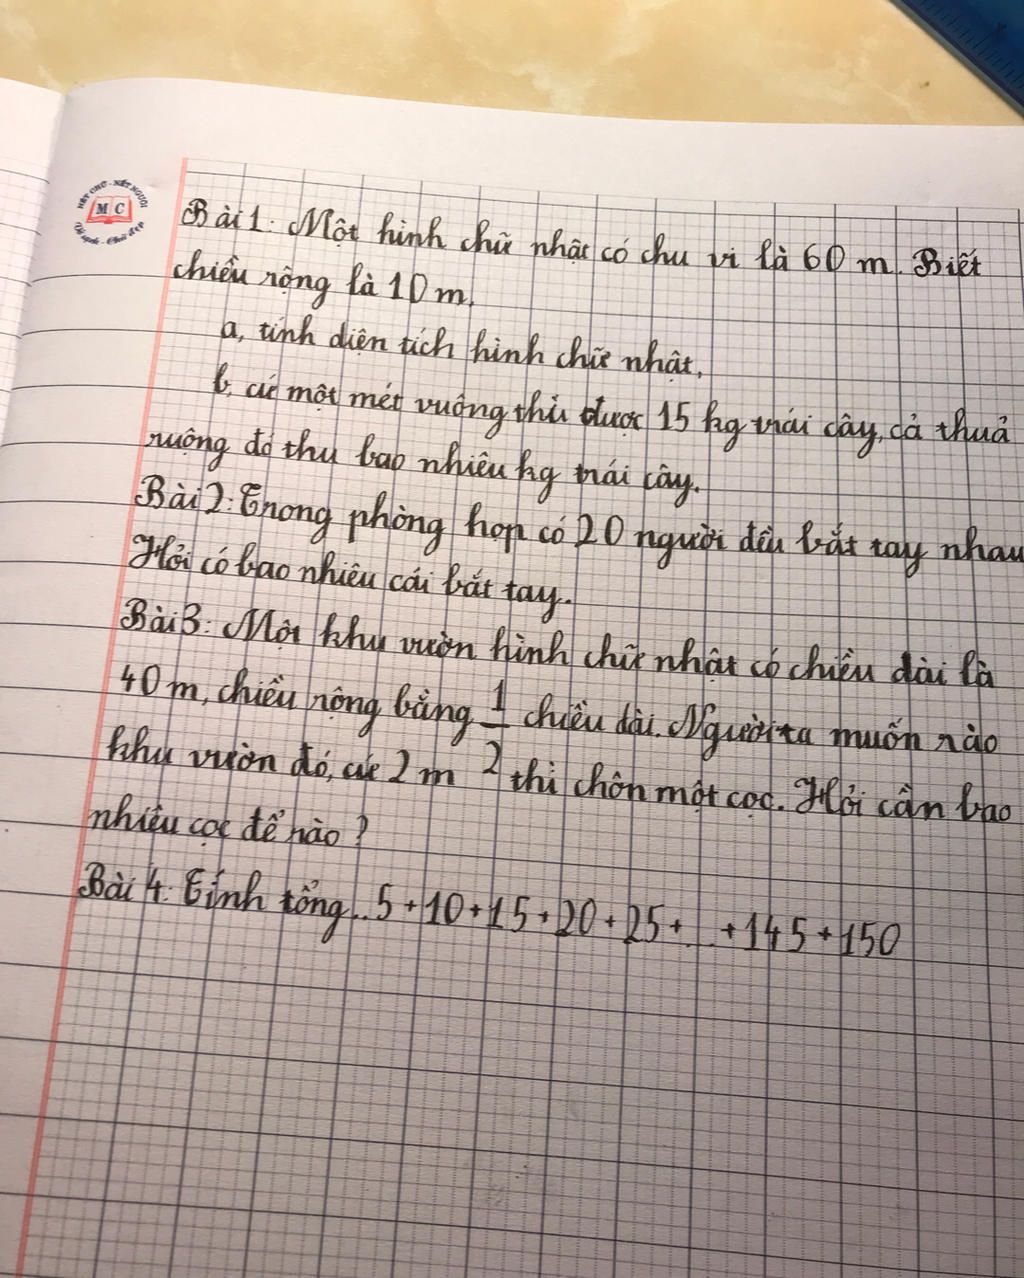 NÉT CHỮ - NẾT NGƯỜI
MC
Vở sạch - Chữ đẹp
Bài 1: Một hình chữ nhật có chu vi là 60 m. Biết
chiều rộng là 10 m.
a, tính diện tích hình chữ nhật.
b, cứ một mét vuông thu được 15 kg trái cây, cả thuả
ruộng đó thu bao nhiêu kg trái cây.
Bài 2: Trong phòng họp có 20 người đều bắt tay nhau
Hỏi có bao nhiêu cái bắt tay.
Bài 3: Một khu vườn hình chữ nhật có chiều dài là
40 m, chiều rộng bằng 1/2 chiều dài. Người ta muốn rào
khu vườn đó, cứ 2 m thì chôn một cọc. Hỏi cần bao
nhiêu cọc để rào?
Bài 4: Tính tổng.. 5 + 10 + 15 + 20 + 25 + ... + 145 + 150